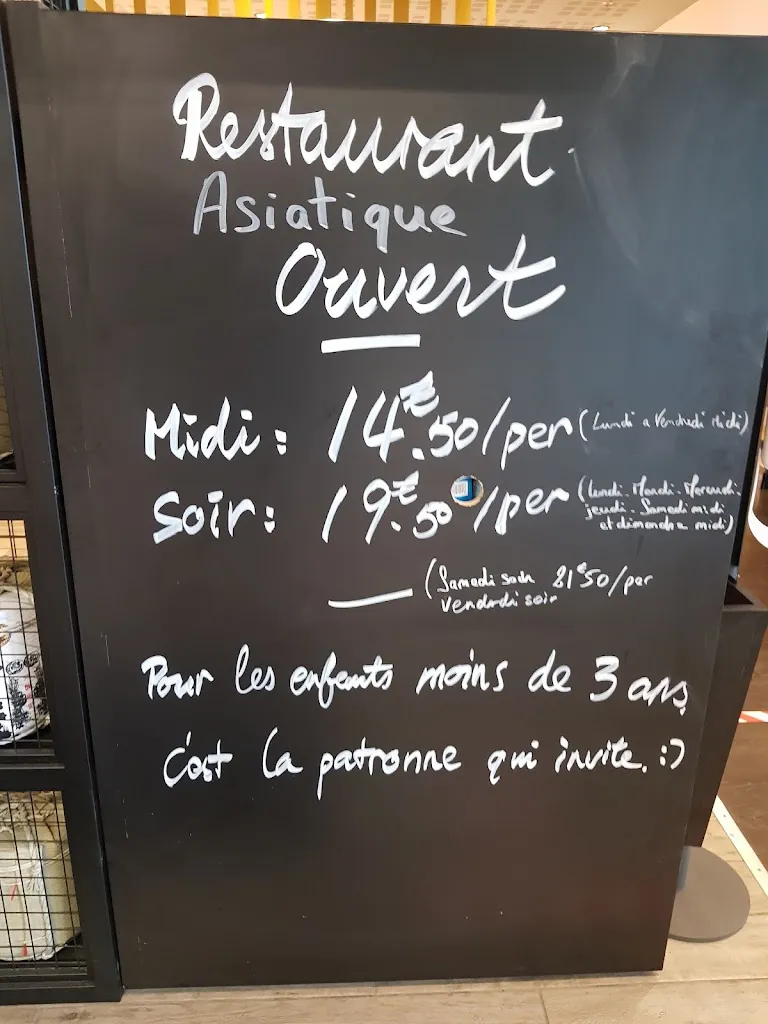 Restaurant
Asiatique
Ouvert
Midi : 14€.50/per (Lundi a Vendredi Midi)
Soir : 19€.50/per (Lundi - Mardi - Mercredi.
jeudi - Samedi midi
et dimanche midi)
(Samedi soir 21€50/per
vendredi soir
Pour les enfants moins de 3 ans,
c'est la patronne qui invite. :)